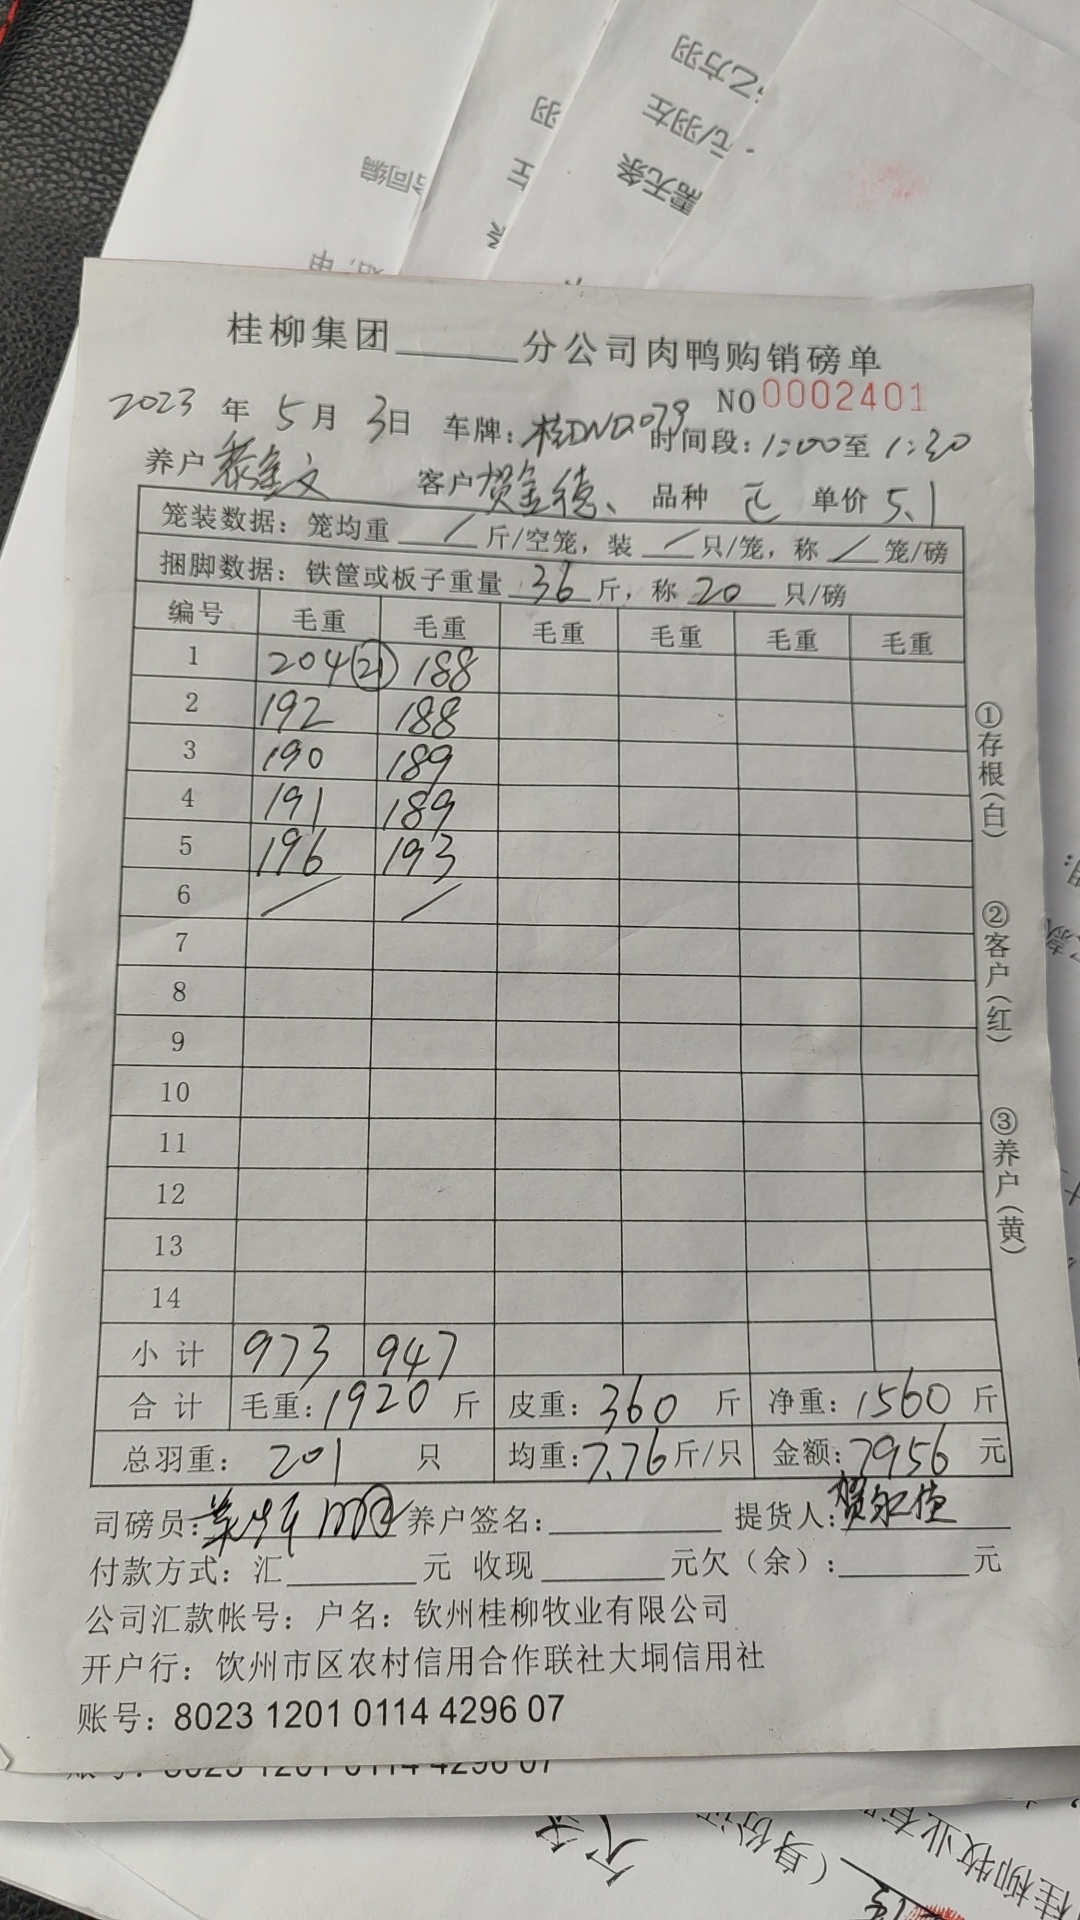 乙方羽
元/羽左
需无条
羽
合同编
桂柳集团______分公司肉鸭购销磅单
NO 0002401
2023年5月3日 车牌: 时间段:1:00至1:20
养户 客户 品种 单价 5.1
笼装数据:笼均重 / 斤/空笼,装 / 只/笼,称 / 笼/磅
捆脚数据:铁筐或板子重量 36 斤,称 20 只/磅
编号 毛重 毛重 毛重 毛重 毛重 毛重
1 204(21) 188
2 192 188
3 190 189
4 191 189
5 196 193
6 / /
7
8
9
10
11
12
13
14
小计 973 947
合计 毛重:1920斤 皮重:360斤 净重:1560斤
总羽重:201只 均重:7.76斤/只 金额:7956元
①存根(白)
②客户(红)
③养户(黄)
司磅员: 养户签名:______ 提货人:
付款方式:汇______元 收现______元欠(余):______元
公司汇款帐号:户名:钦州桂柳牧业有限公司
开户行:饮州市区农村信用合作联社大垌信用社
账号:8023 1201 0114 4296 07
账号:8023 1201 0114 4296 07
(身份证
桂柳牧业有限